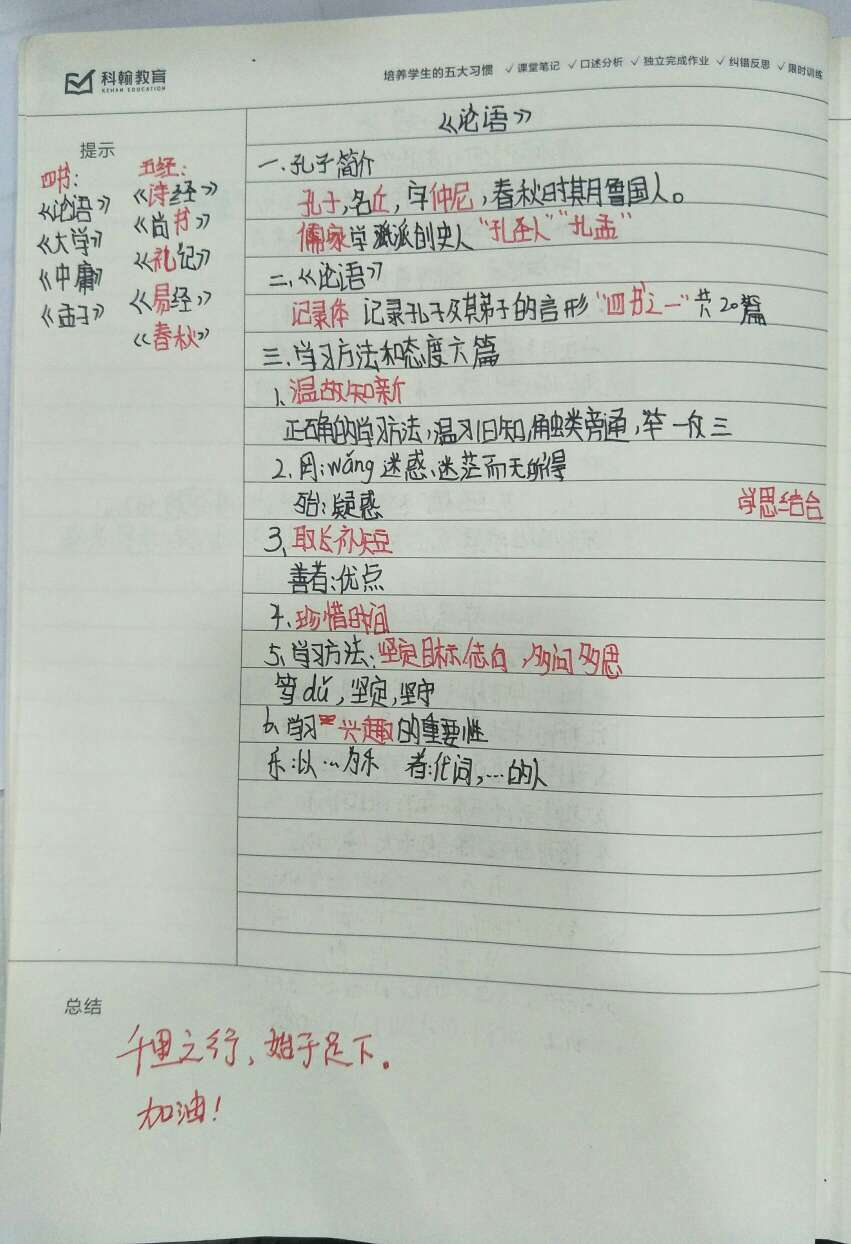 科翰教育
KEHAN EDUCATION
培养学生的五大习惯 ✓课堂笔记 ✓口述分析 ✓独立完成作业 ✓纠错反思 ✓限时训练
提示
四书:
《论语》
《大学》
《中庸》
《孟子》
五经:
《诗经》
《尚书》
《礼记》
《易经》
《春秋》
《论语》
一.孔子简介
孔子,名丘,字仲尼,春秋时期鲁国人。
儒家学派创史人“孔圣人”“孔孟”
二.《论语》
记录体 记录孔子及其弟子的言形“四书之一”共20篇
三.学习方法和态度六篇
1.温故知新
正确的学习方法,温习旧知,触类旁通,举一反三
2.罔:wǎng 迷惑、迷茫而无所得
殆:疑惑 学思结合
3、取长补短
善者:优点
4、珍惜时间
5、学习方法:坚定目标/志向,多问多思
笃dǔ,坚定,坚守
6.学习兴趣的重要性
乐:以…为乐 者:代词,…的人
总结
千里之行,始于足下。
加油!